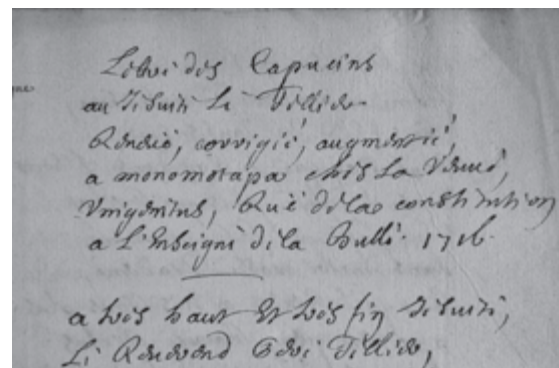 Lettre des Capucins
au Jesuite Le Tellier
Reveüe, corrigée, augmentée,
a monomotapa chés La Veuve,
Unigenitus, Ruë de la constitution
a L'Enseigne de la Bulle. 1716.
a tres haut Et tres fin Jesuite,
Le Reverend Pere Tellier,